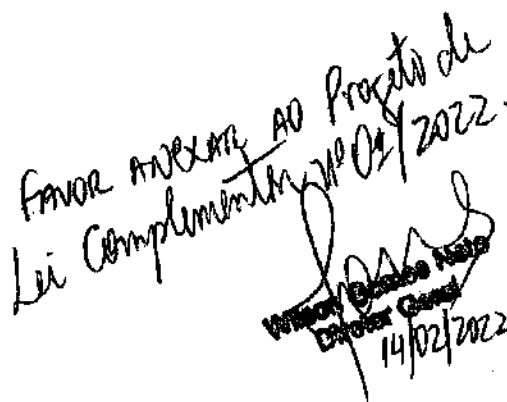 FAVOR ANEXAR AO Projeto de
Lei Complementar nº 01/2022.
Wilson Neto
Diretor Geral
14/02/2022